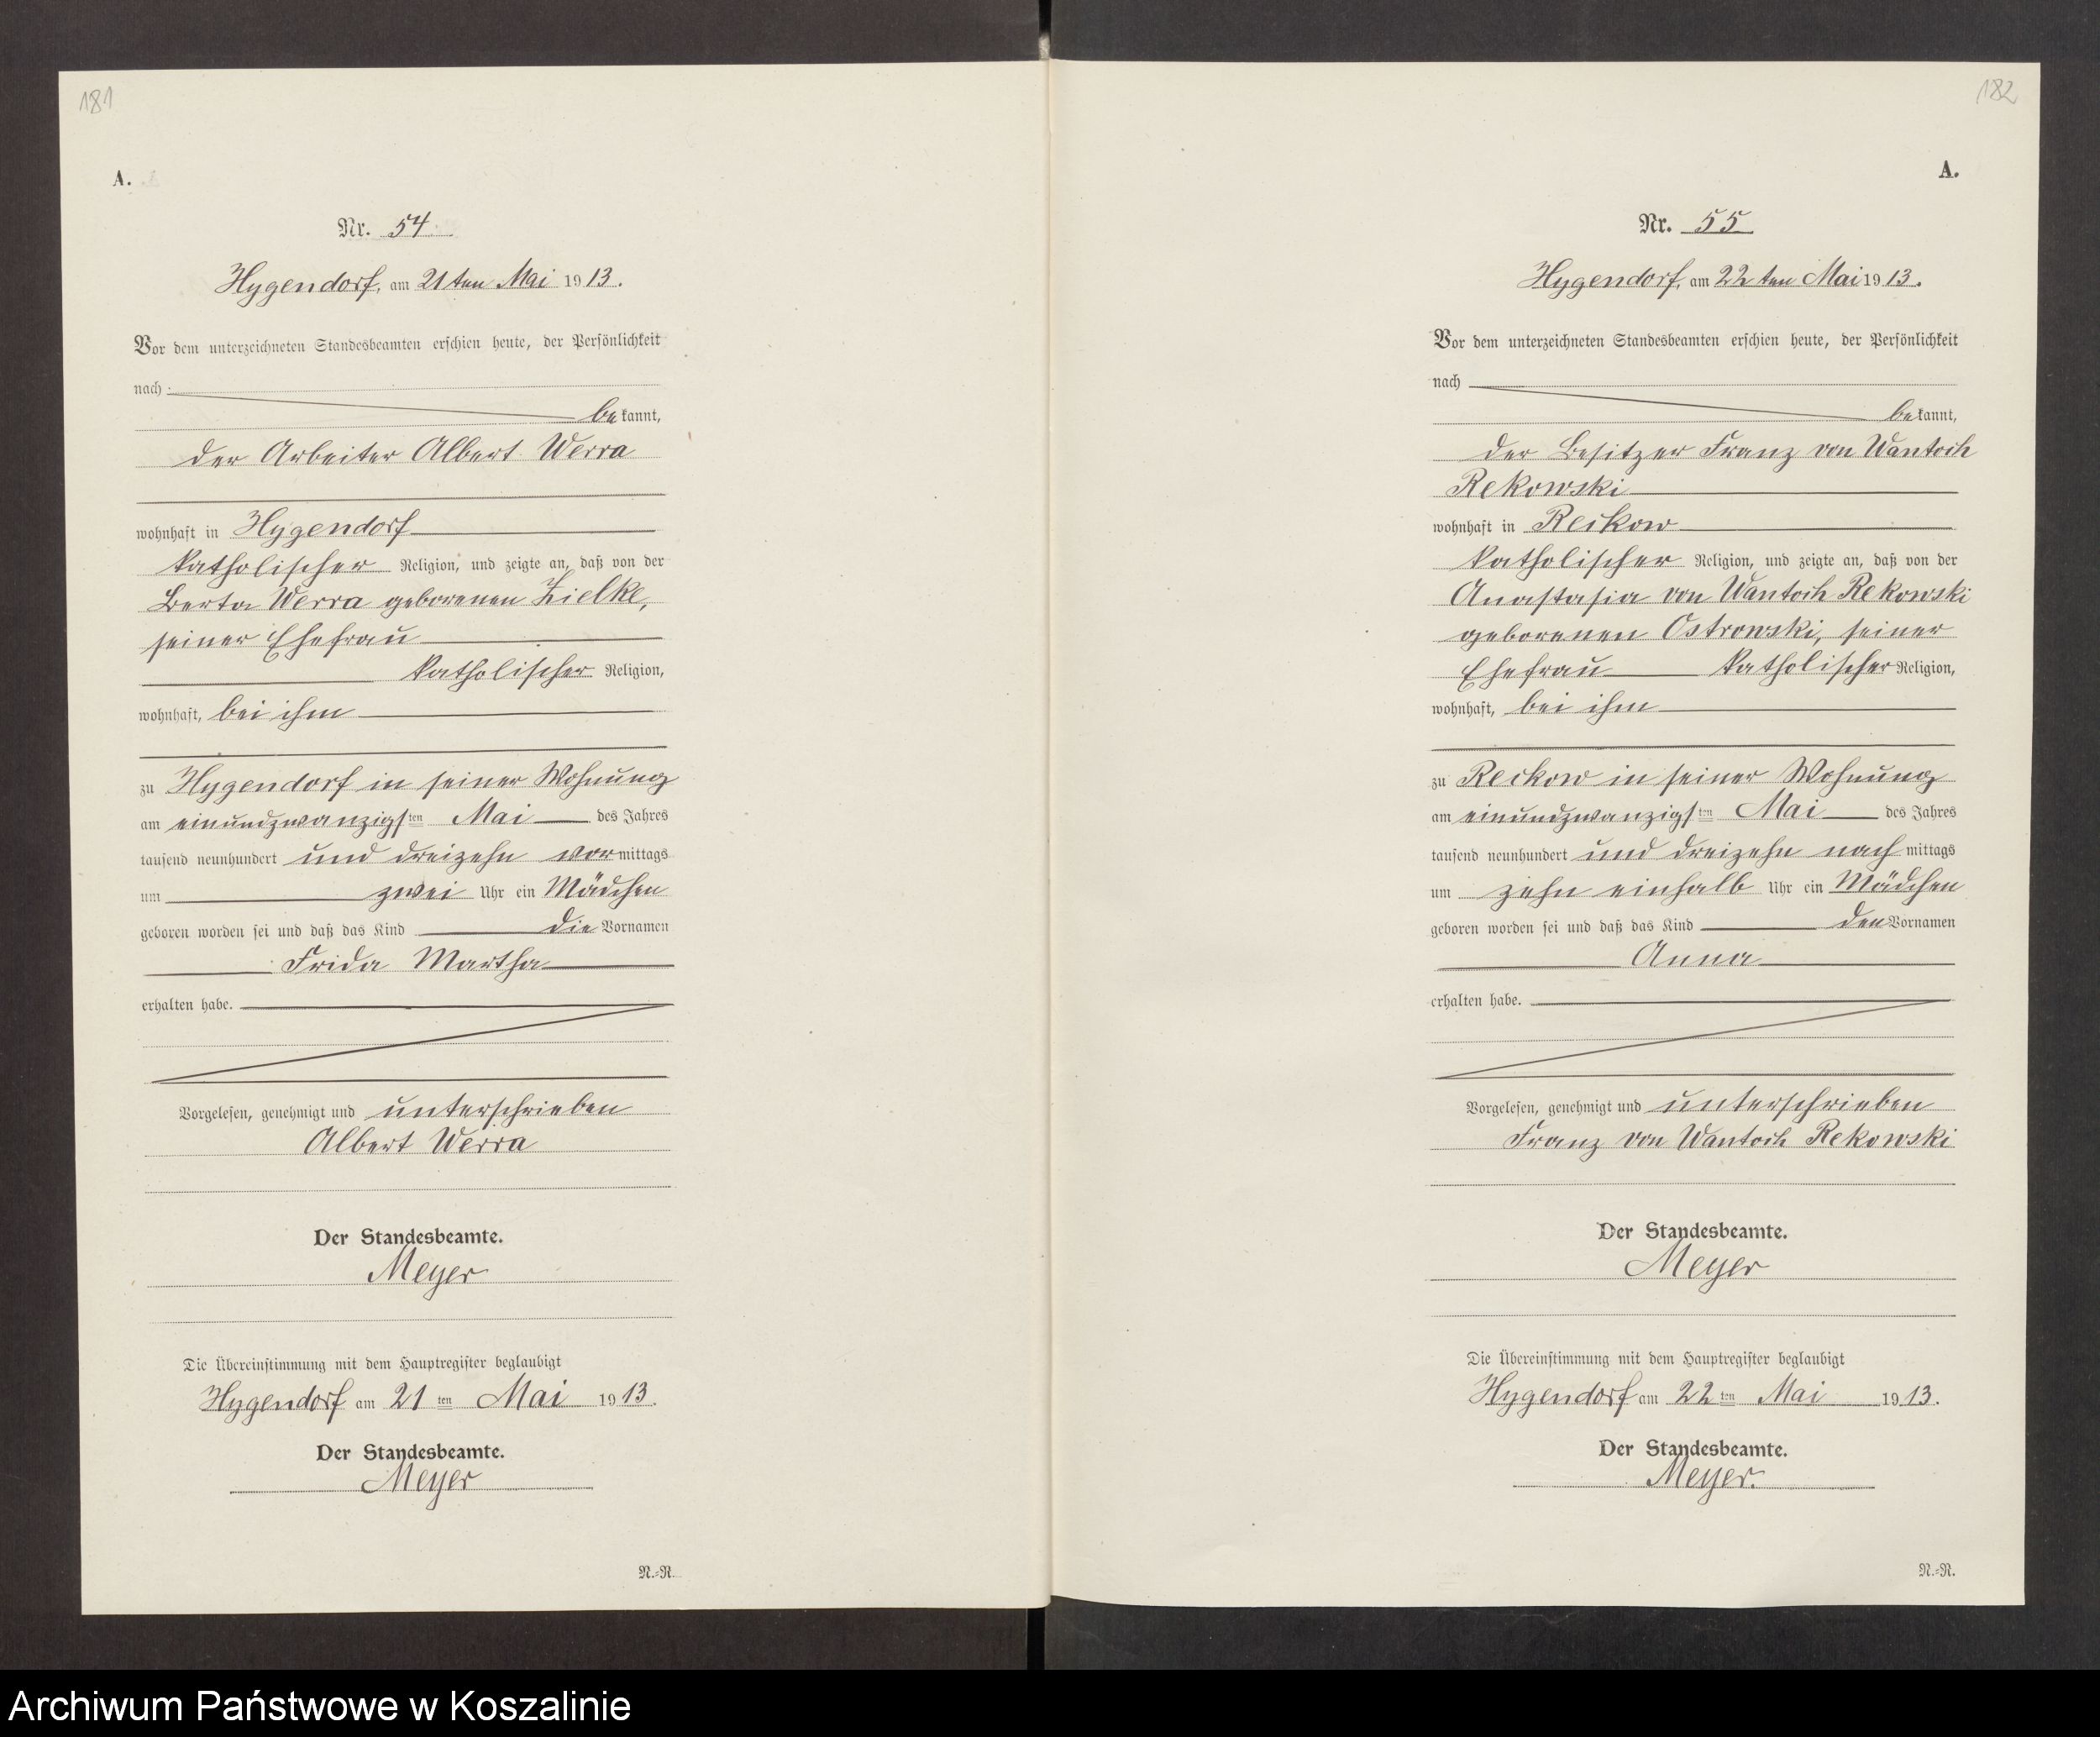 181
A.
Nr. 54
Hygendorf, am 21ten Mai 1913.
Vor dem unterzeichneten Standesbeamten erschien heute, der Persönlichkeit
nach
bekannt,
der Arbeiter Albert Werra
wohnhaft in Hygendorf
katholischer Religion, und zeigte an, daß von der
Berta Werra geborenen Zielke,
seiner Ehefrau
katholischer Religion,
wohnhaft, bei ihm
zu Hygendorf in seiner Wohnung
am einundzwanzigsten Mai des Jahres
tausend neunhundert und dreizehn vormittags
um zwei Uhr ein Mädchen
geboren worden sei und daß das Kind die Vornamen
Frida Martha
erhalten habe.
Vorgelesen, genehmigt und unterschrieben
Albert Werra
Der Standesbeamte.
Meyer
Die Übereinstimmung mit dem Hauptregister beglaubigt
Hygendorf am 21 ten Mai 1913.
Der Standesbeamte.
Meyer
N.=R.
182
A.
Nr. 55
Hygendorf, am 22ten Mai 1913.
Vor dem unterzeichneten Standesbeamten erschien heute, der Persönlichkeit
nach
bekannt,
der Besitzer Franz von Wantoch
Rekowski
wohnhaft in Reckow
katholischer Religion, und zeigte an, daß von der
Anastasia von Wantoch Rekowski
geborenen Ostrowski, seiner
Ehefrau katholischer Religion,
wohnhaft, bei ihm
zu Reckow in seiner Wohnung
am einundzwanzigsten Mai des Jahres
tausend neunhundert und dreizehn nachmittags
um zehn einhalb Uhr ein Mädchen
geboren worden sei und daß das Kind den Vornamen
Anna
erhalten habe.
Vorgelesen, genehmigt und unterschrieben
Franz von Wantoch Rekowski
Der Standesbeamte.
Meyer
Die Übereinstimmung mit dem Hauptregister beglaubigt
Hygendorf am 22 ten Mai 1913.
Der Standesbeamte.
Meyer.
N.=R.
Archiwum Państwowe w Koszalinie